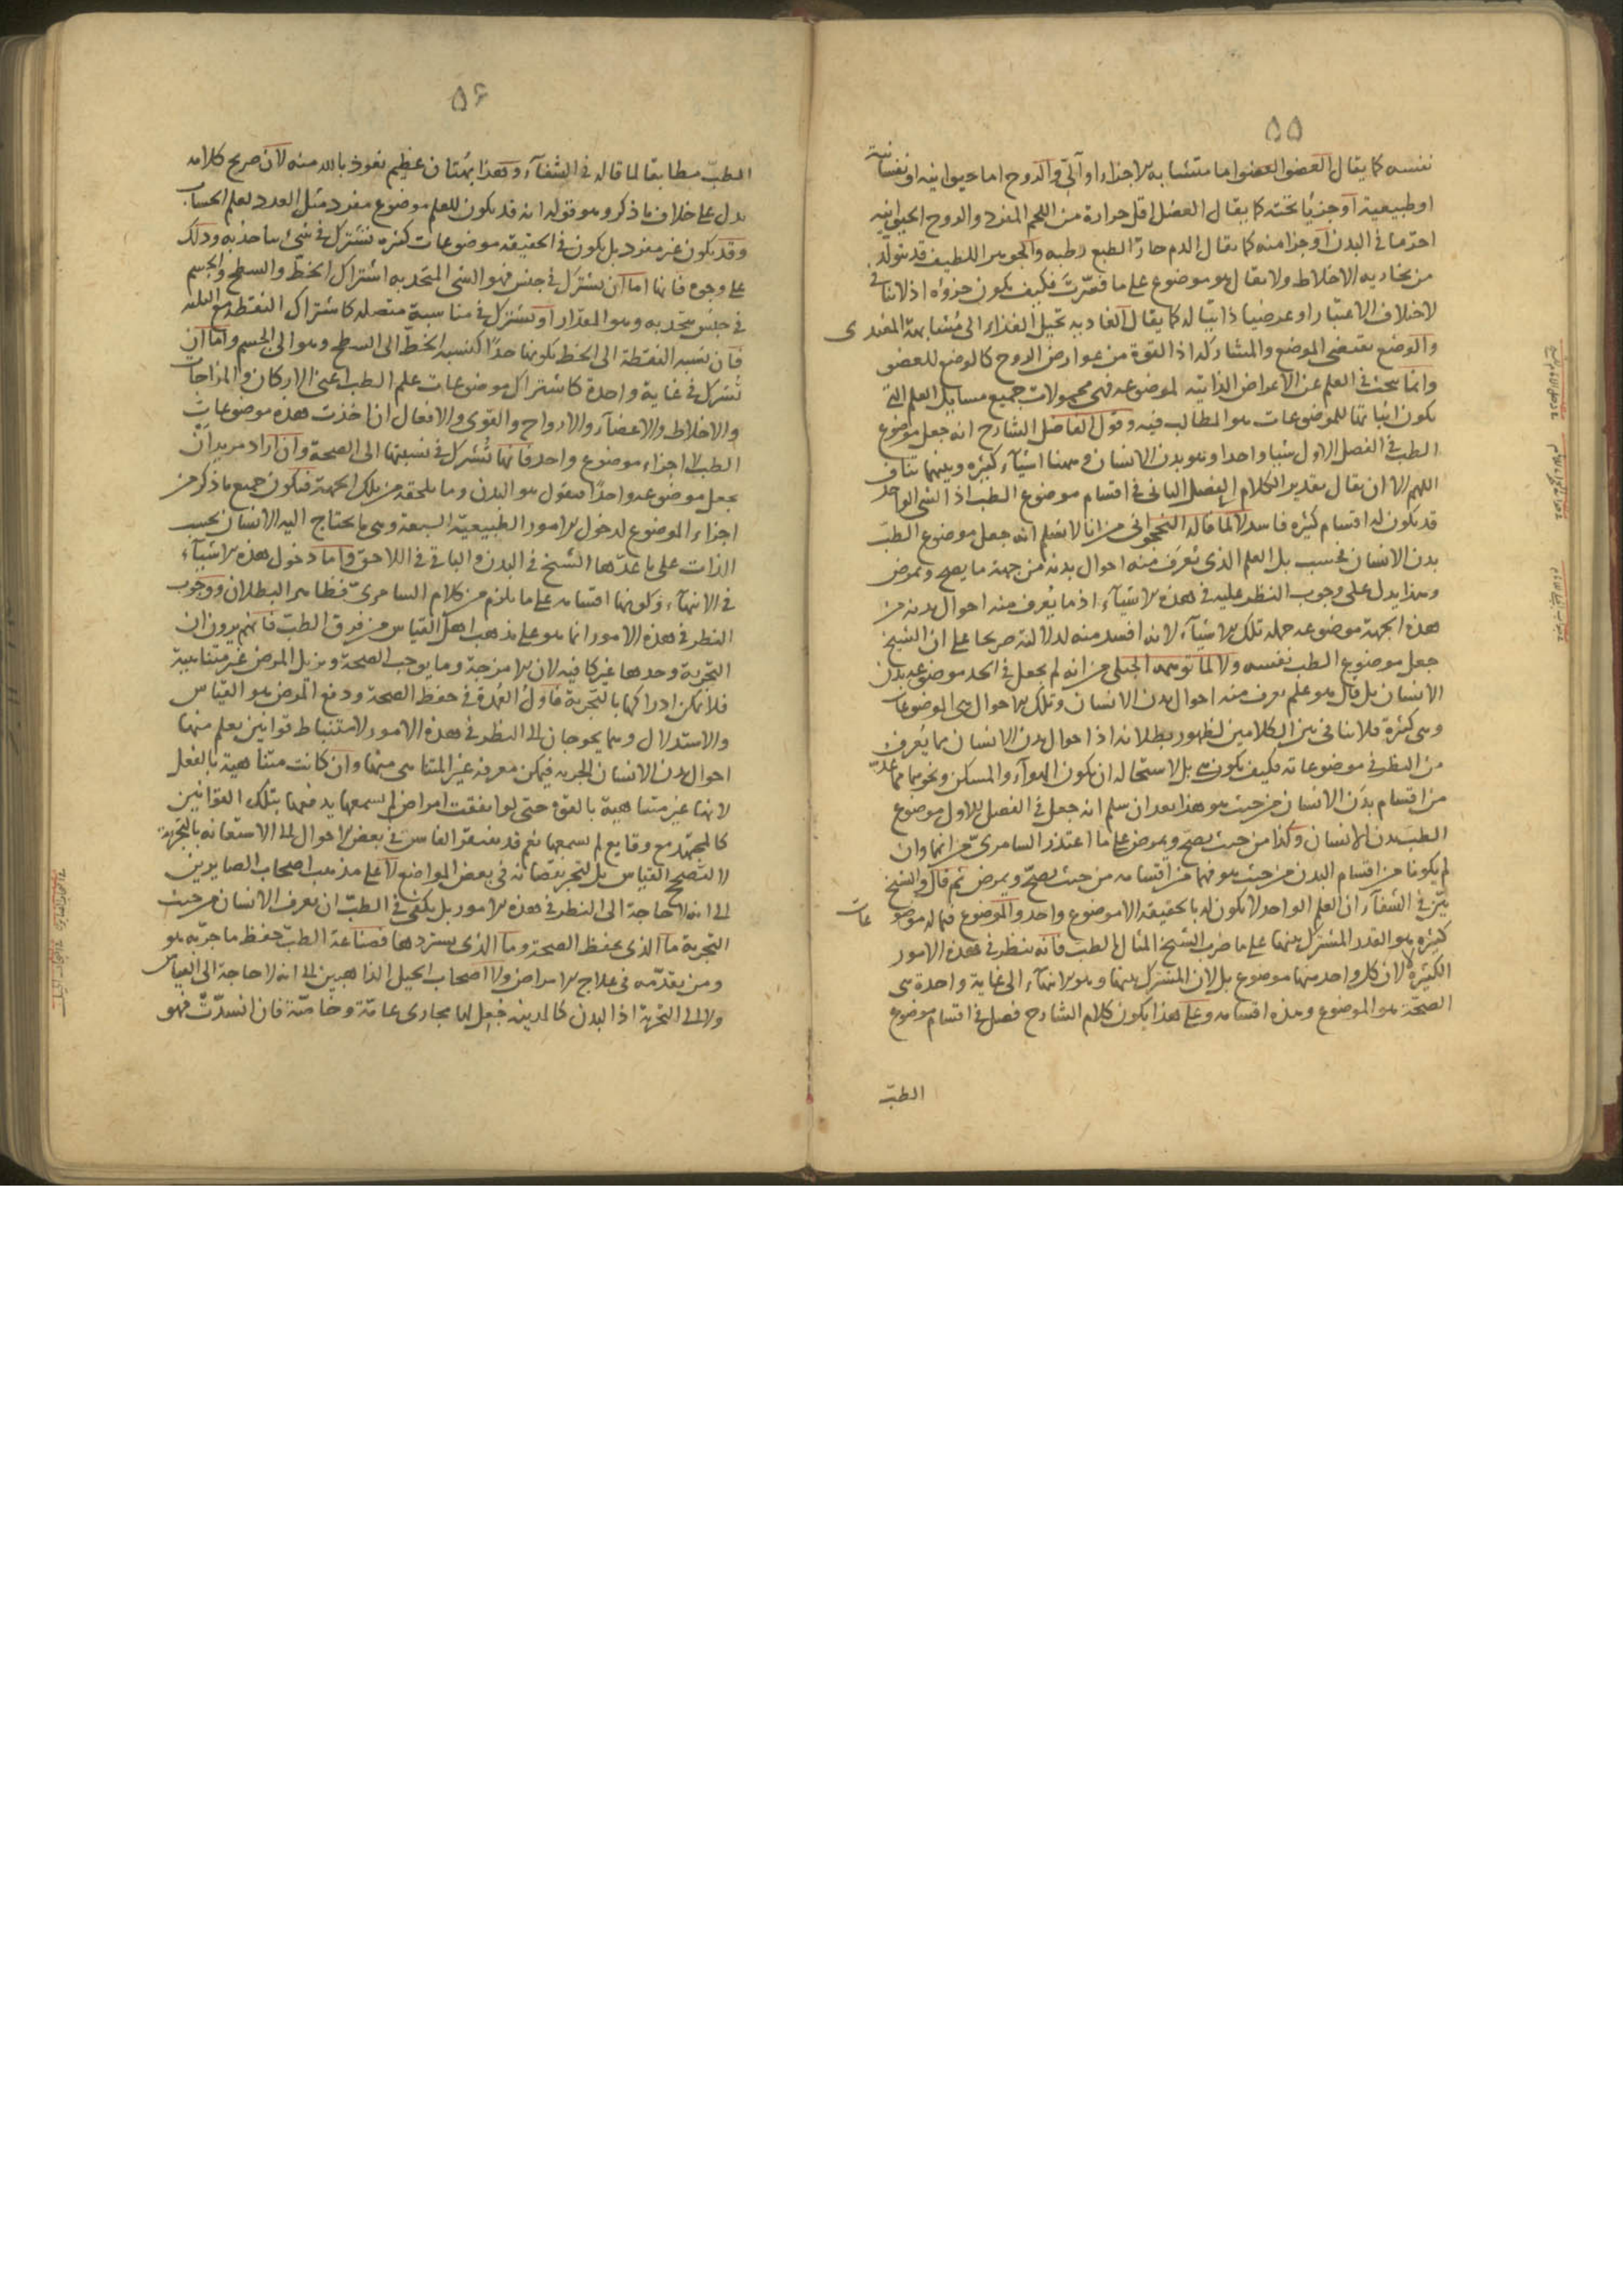 ٥٥
نفسه كما يقال العضو العضو اما متشابه الاجزاء او آلى والروح اما حيوانيه او نفسانية
او طبيعية او جزئيا تحته كما يقال العضل اقل حرارة من اللحم المفرد والروح الحيوانيه
احر ما فى البدن او جزا منه كما يقال الدم حار الطبع رطبه والجوهر اللطيف قد يتولد
من بخاريه الاخلاط ولا يقال هو موضوع على ما فسرت فكيف يكون جزؤه اذ لا تنافى
لاختلاف الاعتبار او عرضيا ذاتيا له كما يقال الغاذيه تحيل الغذاء الى مشابهة المغتذى
والوضع يقتضى الموضع والمشاركه اذ القوة من عوارض الروح كالوضع للعضو
وانما يبحث فى العلم عن الاعراض الذاتيه لموضوعه فهى محمولات جميع مسايل العلم التى
يكون اثباتها للموضوعات هو المطالب فيه وقول الفاضل الشارح انه جعل موضوع
الطب فى الفصل الاول شيا واحدا وهو بدن الانسان وههنا اشيآء كثيره وبينهما تناف
اللهم الا ان يقال تقدير الكلام الفصل الثانى فى اقسام موضوع الطب اذ الشى الواحد
قد يكون له اقسام كثيره فاسد لا لما قاله النخجوانى من انا لا نسلم انه جعل موضوع الطب
بدن الانسان فحسب بل العلم الذى يعرف منه احوال بدنه من جهة ما يصح ويمرض
وهذا يدل على وجوب النظر عليه فى هذه الاشيآء اذ ما يعرف منه احوال بدنه من
هذه الجهة موضوعه جملة تلك الاشيآء لانه افسد منه لدلالته صريحا على ان الشيخ
جعل موضوع الطب نفسه ولا لما توهمه الجيلى من انه لم يجعل فى الحد موضوعه بدن
الانسان بل قال هو علم يعرف منه احوال بدن الانسان وتلك الاحوال هى الموضوعات
وهى كثيرة فلا تنافى بين الكلامين لظهور بطلانه اذ احوال بدن الانسان مما يعرف
من النظر فى موضوعاته فكيف يكون هى بل لاستحاله ان يكون الهوآء والمسكن ونحوهما مما عده
من اقسام بدن الانسان من حيث هو هذا بعد ان سلم انه جعل فى الفصل الاول موضوع
الطب بدن الانسان وكذا من حيث يصح ويمرض على ما اعتذر السامرى من انهما وان
لم يكونا من اقسام البدن من حيث هو فهما من اقسامه من حيث يصح ويمرض ثم قال والشيخ
بين فى الشفآء ان العلم الواحد لا يكون له بالحقيقة الا موضوع واحد والموضوع فيما له موضوعات
كثيره هو القدر المشترك بينها على ما ضرب الشيخ المثال بالطب فانه ينظر فى هذه الامور
الكثيرة لا لان كل واحد منها موضوع بل لان المشترك بينها وهو الانتهآء الى غاية واحدة هى
الصحة هو الموضوع وهذه اقسامه وعلى هذا يكون كلام الشارح فصل فى اقسام موضوع
الطب
٥٦
الطب مطابقا لما قاله فى الشفآء وهذا بهتان عظيم نعوذ بالله منه لان صريح كلامه
يدل على خلاف ما ذكر وهو قوله انه قد يكون للعلم موضوع مفرد مثل العدد لعلم الحساب
وقد يكون غير مفرد بل يكون فى الحقيقه موضوعات كثيره تشترك فى شئ يتاحد به وذلك
على وجوه فانها اما ان تشترك فى جنس فهو الشى المتحد به اشتراك الخط والسطح والجسم
فى جنس يتحد به وهو المقدار او تشترك فى مناسبة متصله كاشتراك النقطه مع الثلثه
فان نسبه النقطة الى الخط بكونها حدا كنسبه الخط الى السطح وهو الى الجسم واما ان
تشترك فى غاية واحدة كاشتراك موضوعات علم الطب اعنى الاركان والمزاجات
والاخلاط والاعضآء والارواح والقوى والافعال ان اخذت هذه موضوعات
الطب لا اجزاء موضوع واحد فانها تشترك فى نسبتها الى الصحة وان اراد مريد ان
يجعل موضوعه واحدا فيقول هو البدن وما يلحقه من تلك الجهة فيكون جميع ما ذكر من
اجزاء الموضوع لدخول الامور الطبيعية السبعة وهى ما يحتاج اليه الانسان بحسب
الذات على ما عدها الشيخ فى البدن والباقى فى اللاحق واما دخول هذه الاشيآء
فى الانتهآء وكونها اقسامه على ما يلزم من كلام السامرى فظاهر البطلان ووجوب
النظر فى هذه الامور انما هو على مذهب اهل القياس من فرق الطب فانهم يرون ان
التجربة وحدها غير كافيه لان الامزجة وما يوجب الصحة ويزيل المرض غير متناهية
فلا يمكن ادراكها بالتجربة فاول العمدة فى حفظ الصحة ودفع المرض هو القياس
والاستدلال وهما يحوجان الى النظر فى هذه الامور لاستنباط قوانين يعلم منها
احوال بدن الانسان الجزئيه فيمكن معرفه غير المتناهى منها وان كانت متناهية بالفعل
لانها غير متناهية بالقوة حتى لو اتفقت امراض لم يسمعها يدفعها بتلك القوانين
كالمجتهد مع وقايع لم يسمعها نعم قد يفتقر القاس فى بعض الاحوال الى الاستعانه بالتجربة
لا لتصحيح القياس بل لتجبر نقصانه فى بعض المواضع لا على مذهب اصحاب الصايرين
الى انه لا حاجة الى النظر فى هذه الامور بل يكفى فى الطب ان يعرف الانسان من حيث
التجربة ما الذى يحفظ الصحة وما الذى يستردها فصناعة الطب حفظ ما جربه هو
ومن تقدمه فى علاج الامراض ولا اصحاب الحيل الذاهبين الى انه لا حاجة الى القياس
ولا الى التجربة اذ البدن كالمدينه جعل لها مجارى عامة وخاصة فان انسدت فهو